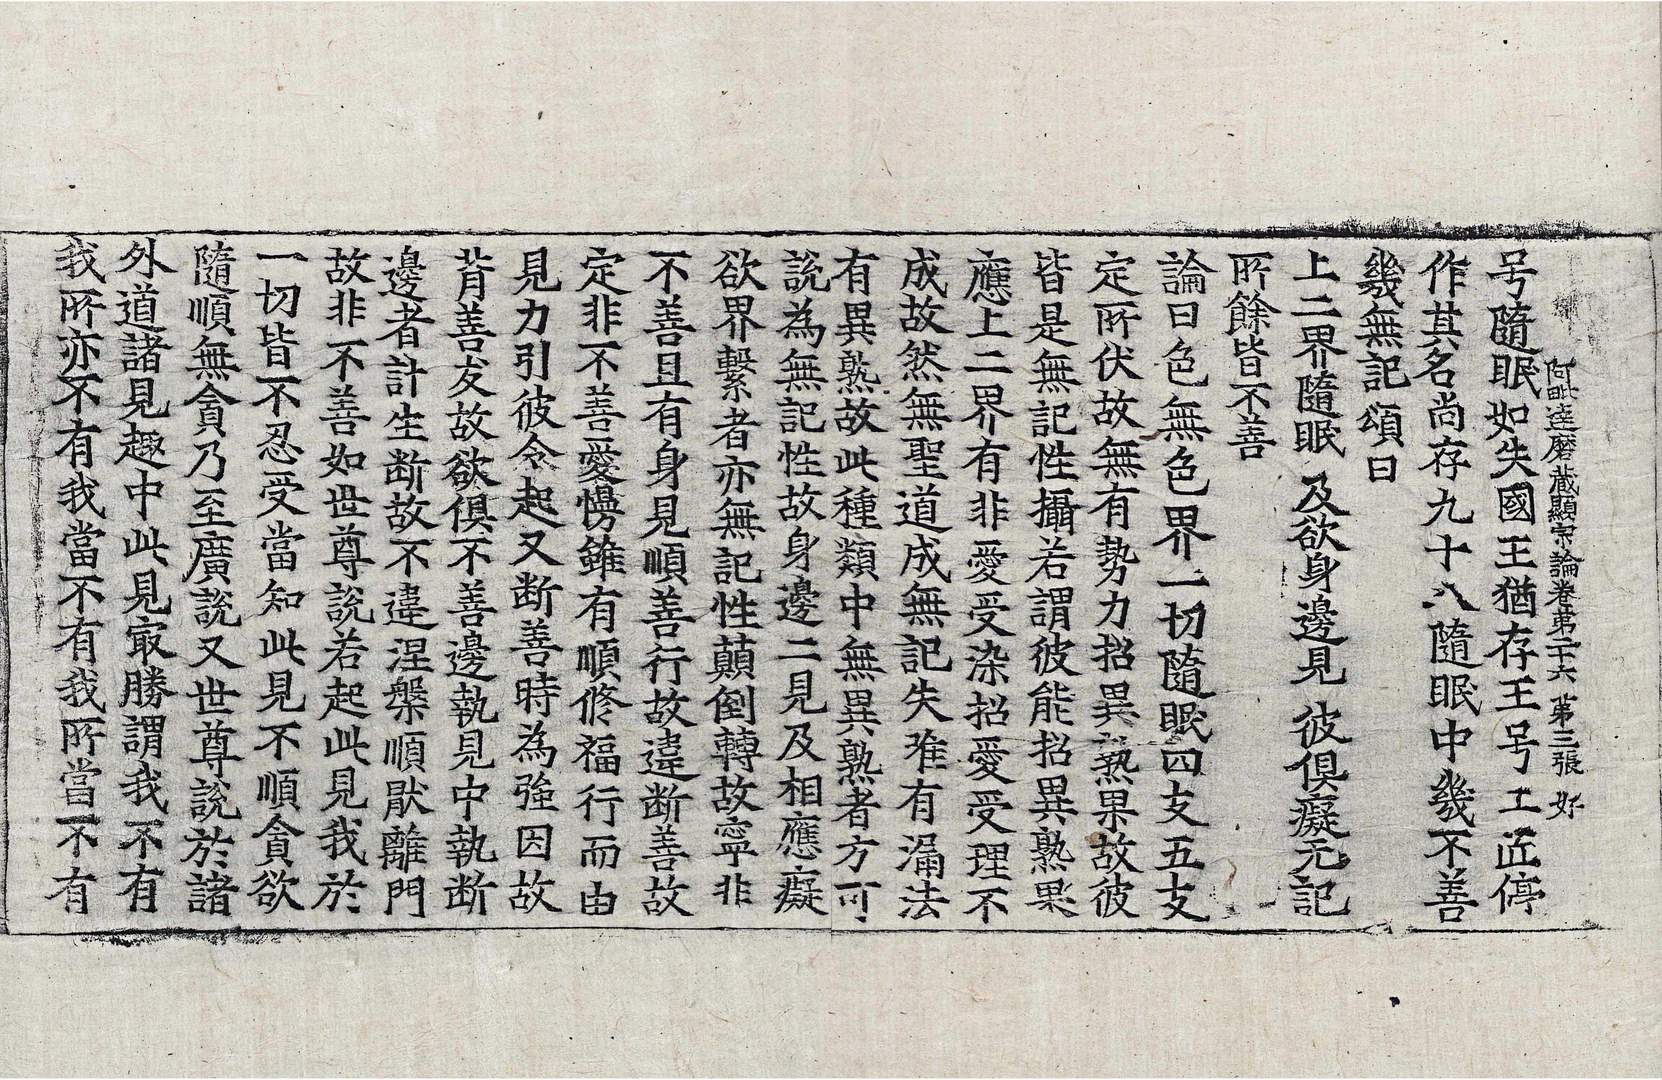 阿毗達磨藏顯宗論卷第二十六 第三張 好
号隨眠如失國王猶存王号工匠停
作其名尚存九十八隨眠中幾不善
幾無記頌曰
上二界隨眠 及欲身邊見 彼俱癡无記
所餘皆不善
論曰色無色界一切隨眠四支五支
定所伏故無有勢力招異熟果故彼
皆是無記性攝若謂彼能招異熟果
應上二界有非愛受染招愛受理不
成故然無聖道成無記失唯有漏法
有異熟故此種類中無異熟者方可
說為無記性故身邊二見及相應癡
欲界繫者亦無記性顛倒轉故寧非
不善且有身見順善行故違斷善故
定非不善愛慢雖有順修福行而由
見力引彼令起又斷善時為強因故
背善友故欲俱不善邊執見中執斷
邊者計生斷故不違涅槃順猒離門
故非不善如世尊說若起此見我於
一切皆不忍受當知此見不順貪欲
隨順無貪乃至廣說又世尊說於諸
外道諸見趣中此見㝡勝謂我不有
我所亦不有我當不有我所當不有